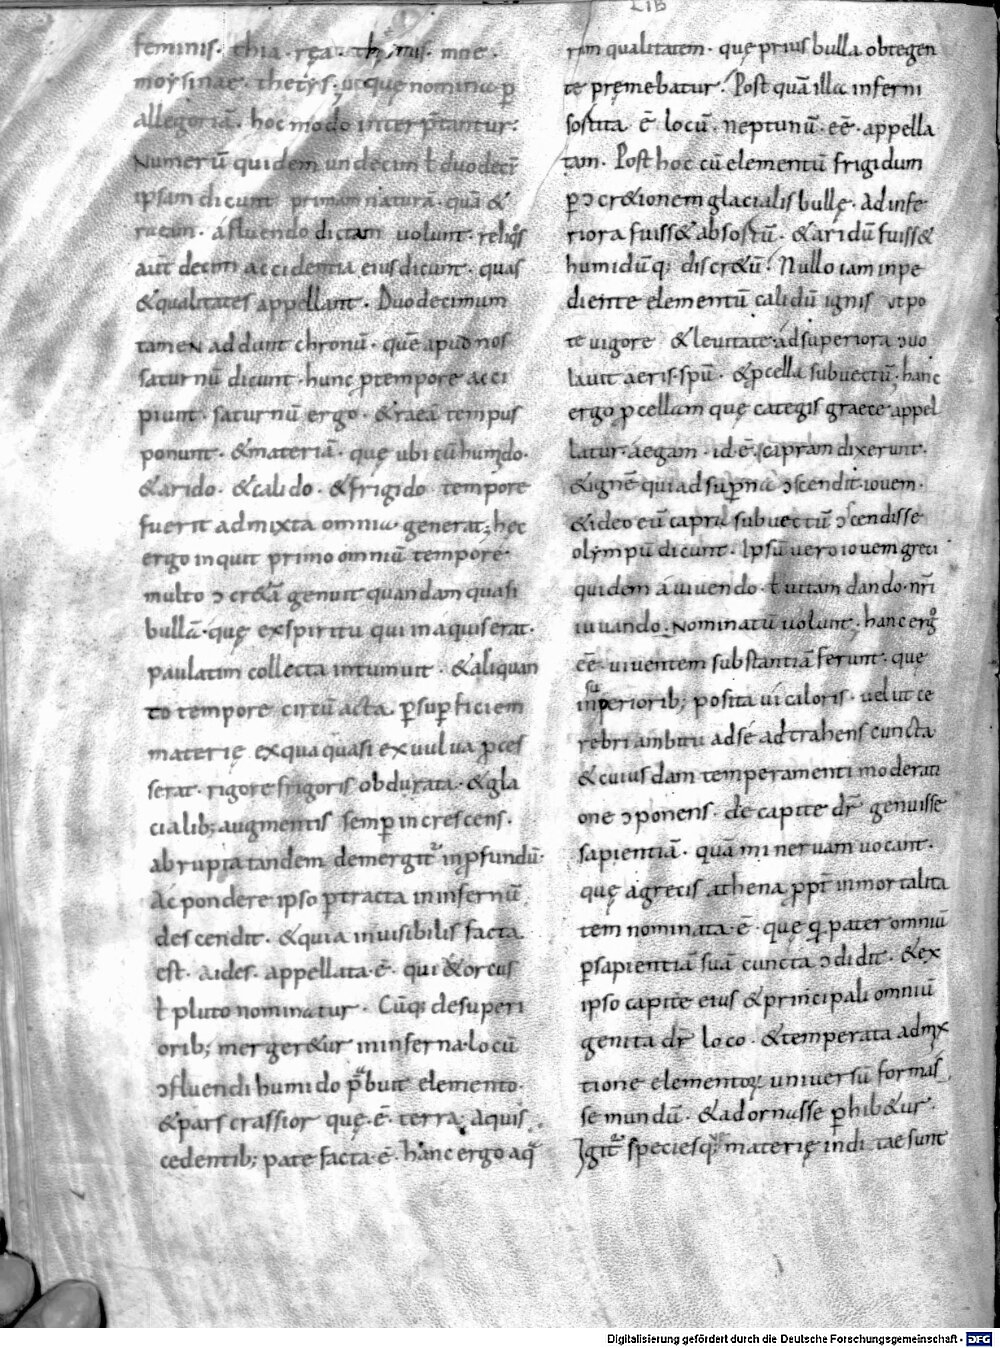 LIB
feminis · thia · rea · themis · mne ·
moysinae · thetys · atque nomina p̄
allegoriā · hoc modo interp̄tantur ·
Numerū quidem undecim ł duodecī
ipsam dicunt primam naturā · quā &
ream · áfluendo dictam uolunt · reliq̊s
aūt decem accidentia eius dicunt · quas
& qualitates appellant · Duodecimum
tamen addunt chronū · quē apud nos
saturnū dicunt · hunc p̄ tempore acci
piunt · saturnū ergo · & raeā tempus
ponunt · & materiā · quę ubi cū humido ·
& arido · & calido · & frigido tempore
fuerit admixta omnia generat; hec
ergo inquit primo omniū tempore ·
multo ɔcr&ā genuit quandam quasi
bullā · quę ex spiritu qui in aquis erat ·
paulatim collecta intumuit · & aliquan
to tempore circū acta p̄ sup̄ficiem
materię ex qua quasi ex uulua p̄ces
serat · rigore frigoris obdurata · & gla
cialib; augmentis semp̄ increscens ·
abrupta tandem demergit᷑ in p̄fundū ·
Ac pondere ipso p̄tracta in infernū
descendit · & quia inuisibilis facta
est · aides · appellata ē · qui & orcus
ł pluto nominatur · Cūq; de superi
orib; merger&ur in inferna · locū
ɔfluendi humido p̄buit elemento ·
& pars crassior quę · ē · terra · aquis
cedentib; patefacta · ē · hanc ergo aq̄
rum qualitatem · quę prius bulla obtegen
te pręmebatur · Post quā illa inferni
sostita ē locū · neptunū · eē · appella
tam · Post hoc cū elementū frigidum
p̄ ɔcr&ionem glacialis bullę · ad infe
riora fuiss& absostū · & aridū fuiss&
humidūq; discr&ū · Nullo iam inpe
diente elementū calidū ignis utpo
te uigore & leuitate · ad superiora ɔuo
lauit aeris · spū · & p̄cella subuectū; hanc
ergo p̄cellam quę categis graece appel
latur · aegam · id · ē · capram dixerunt ·
& ignē qui ad sup̄na ɔscendit · iouem ·
& ideo eū capra subuectū ɔscendisse
olympū dicunt · Ipsū uero iouem greci
quidem á uiuendo · ł uitam dando · nr̄i
iuuando · Nominatū uolunt; hanc erg̊
eē uiuentem substantiā ferunt · que
su
inperiorib; posita ui caloris · uelut ce
rebri ambitu ad sé adtrahens cuncta
& cuiusdam temperamenti moderati
one ɔponens · de capite dr̄ genuisse
sapientiā · quā mineruam uocant ·
quę agrecis athena p̄pt̄ inmortalita
tem nominata · ē · quę q̄ pater omniū
p̄ sapientiā suā cuncta ɔdidit · & ex
ipso capite eius & principali omniū
genita dr̄ loco · & temperata admix
tione elementoꝝ uniuersū formas
se mundū · & adornasse p̄hib&ur ·
Igit᷑ speciesq; materię inditae sunt
Digitalisierung gefördert durch die Deutsche Forschungsgemeinschaft - DFG